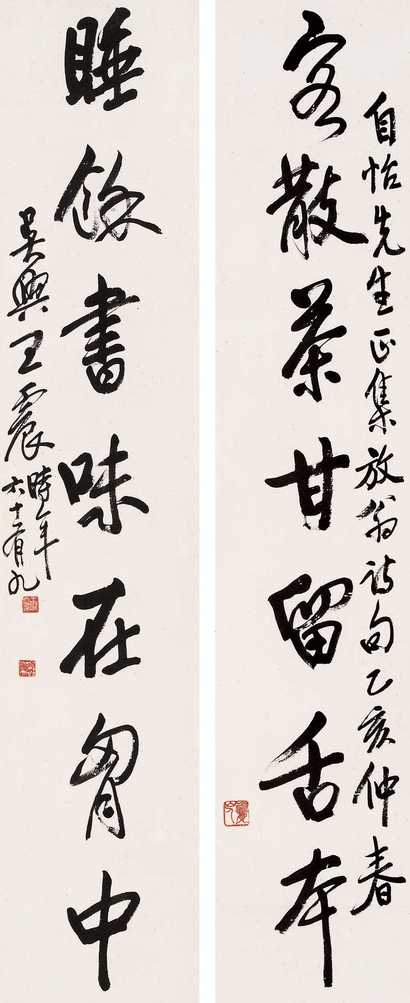 自怡先生正集放翁詩句乙亥仲春
客散茶甘留舌本
睡餘書味在胷中
吳興王震時年
六十有九